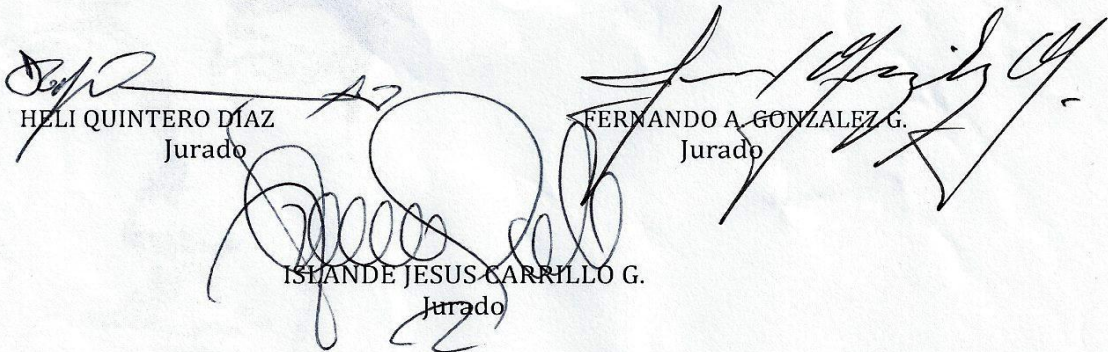 HELI QUINTERO DIAZ
Jurado
FERNANDO A. GONZALEZ G.
Jurado
ISLANDE JESUS CARRILLO G.
Jurado